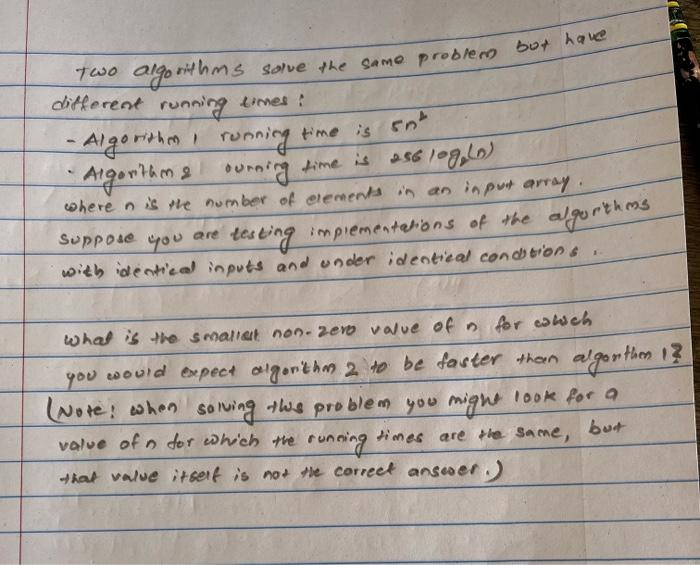 Two algorithms solve the same problem but have
different running times:
- Algorithm 1 running time is 5n²
- Algorithm 2 ounning time is 256 log₂(n)
where n is the number of elements in an input array.
suppose you are testing implementations of the algorithms
with identical inputs and under identical conditions.
what is the smallest non-zero value of n for which
you would expect algorithm 2 to be faster than algorithm 1?
(Note: when solving this problem you might look for a
value of n for which the running times are the same, but
that value itself is not the correct answer.)